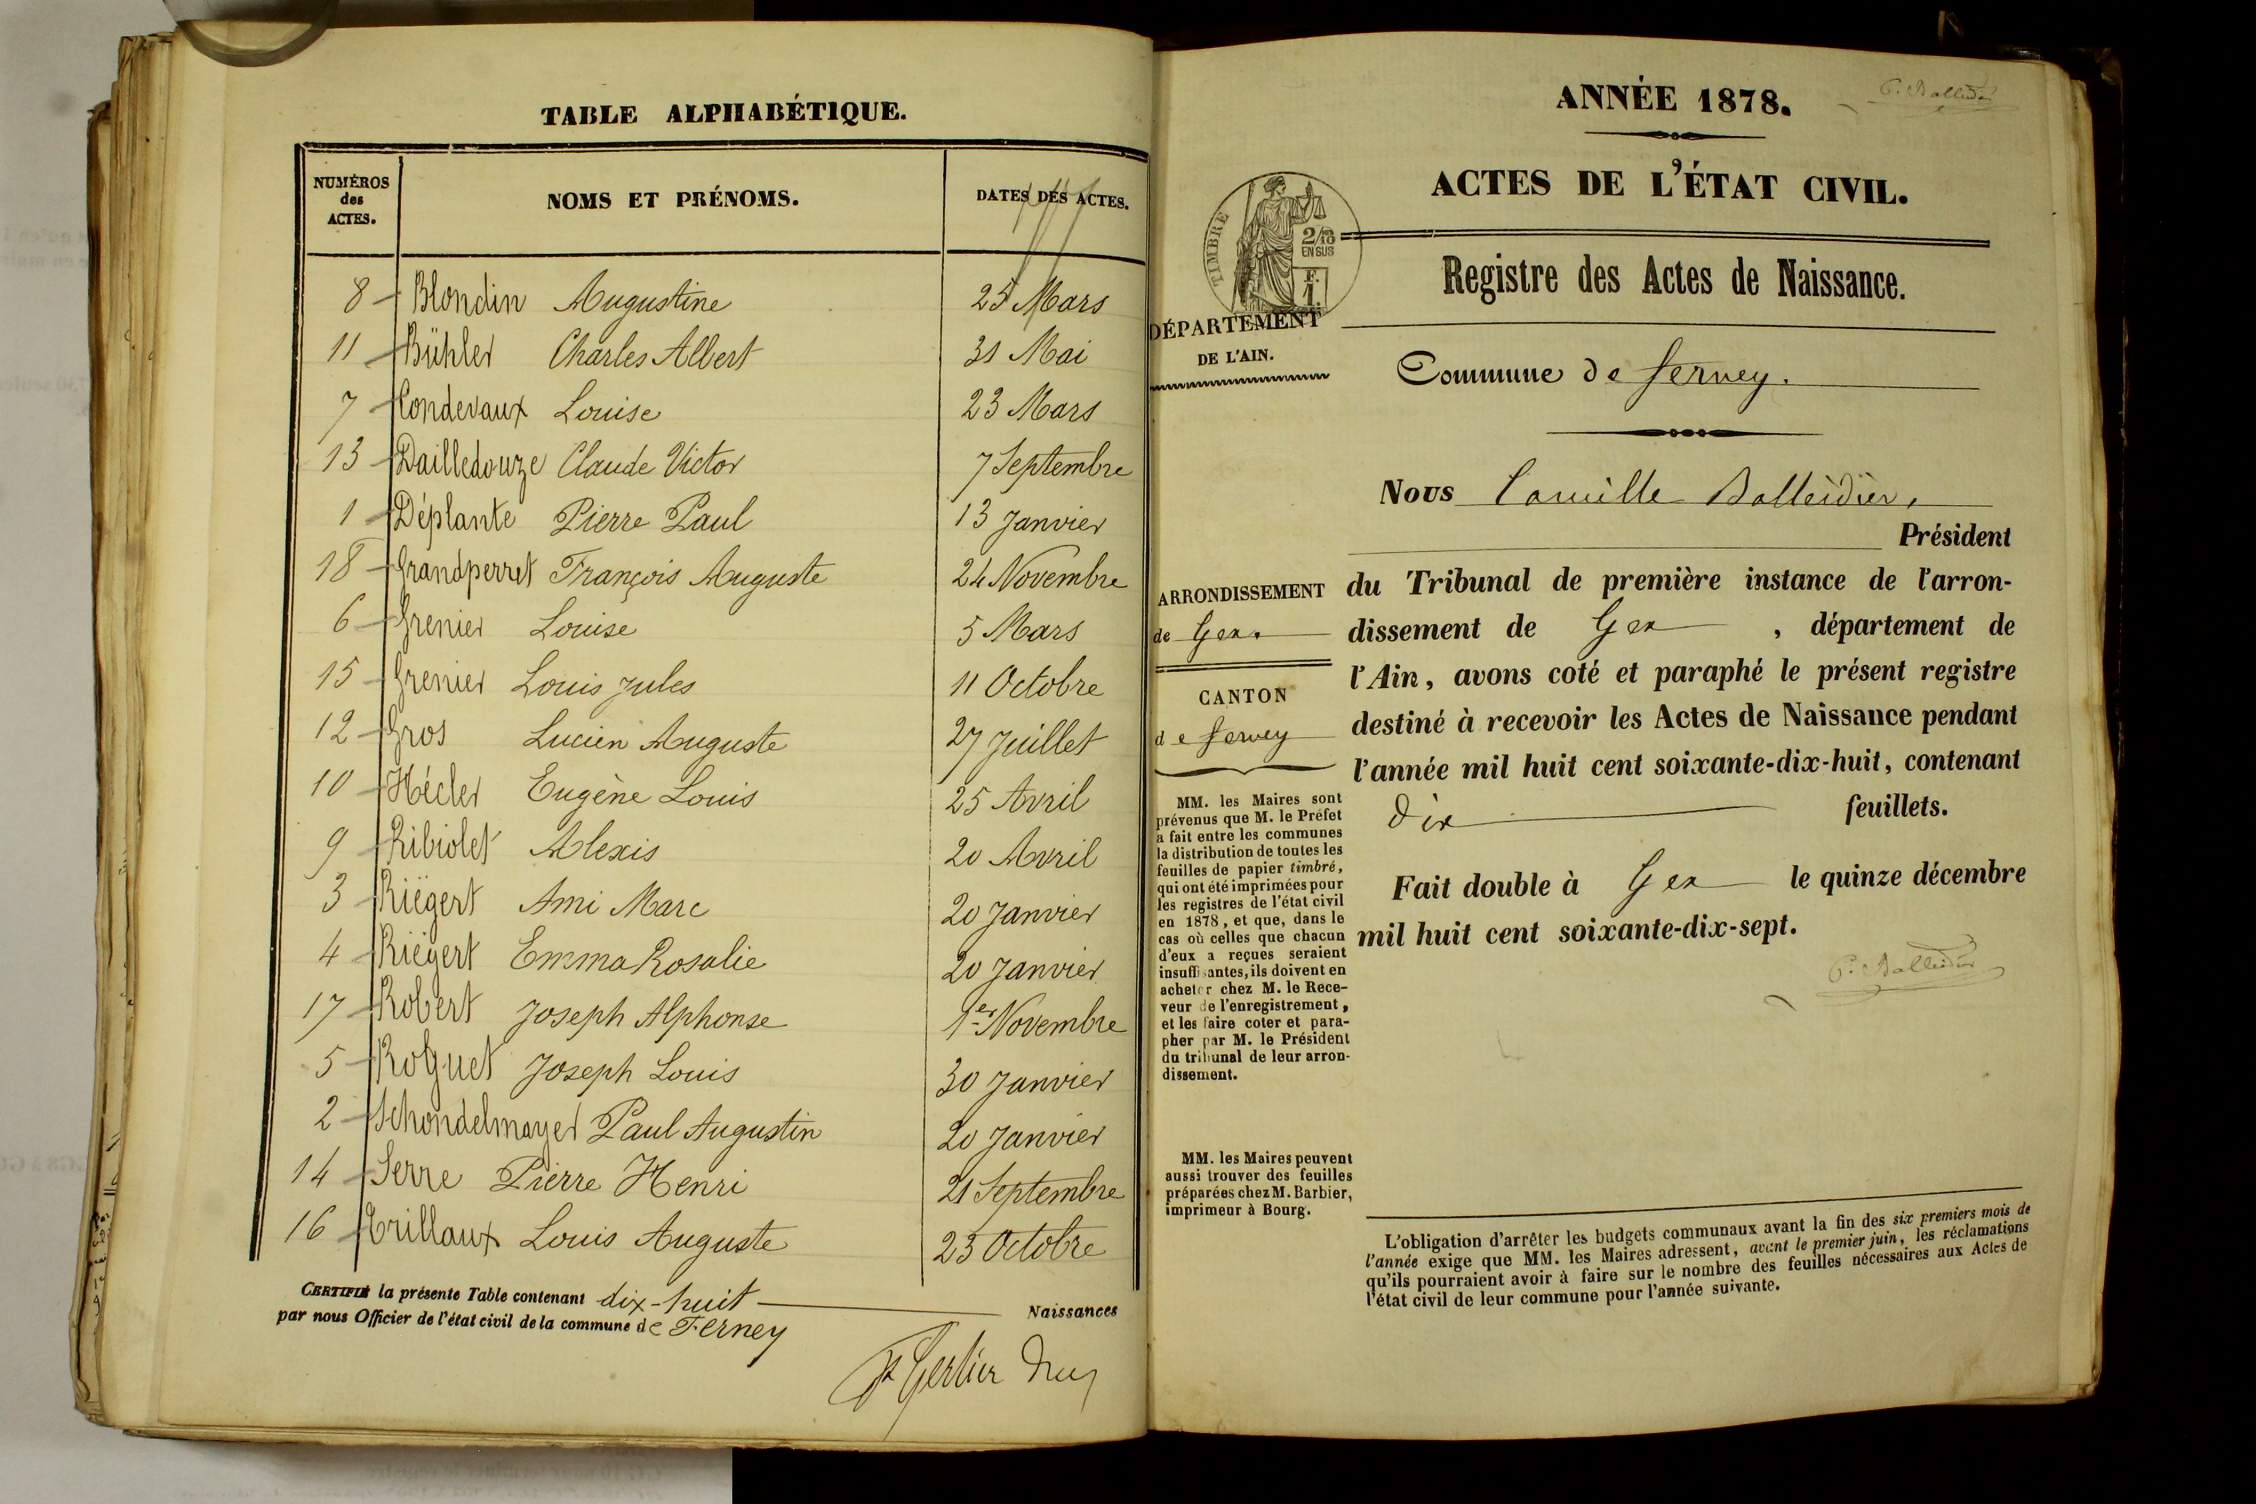 TABLE ALPHABÉTIQUE.
NUMÉROS des ACTES. NOMS ET PRÉNOMS. DATES DES ACTES.
8 Blondin Augustine 25 Mars
11 Bühler Charles Albert 31 Mai
7 Condevaux Louise 23 Mars
13 Dailledouze Claude Victor 7 Septembre
1 Déplante Pierre Paul 13 Janvier
18 Grandperret François Auguste 24 Novembre
6 Grenier Louise 5 Mars
15 Grenier Louis Jules 11 Octobre
12 Gros Lucien Auguste 27 Juillet
10 Hécler Eugène Louis 25 Avril
9 Ribiolet Alexis 20 Avril
3 Riëgert Ami Marc 20 Janvier
4 Riëgert Emma Rosalie 20 Janvier
17 Robert Joseph Alphonse 1er Novembre
5 Roguet Joseph Louis 30 Janvier
2 Schondelmayer Paul Augustin 20 Janvier
14 Serre Pierre Henri 21 Septembre
16 Trillaux Louis Auguste 23 Octobre
CERTIFIÉ la présente Table contenant dix-huit Naissances
par nous Officier de l'état civil de la commune de Ferney
ANNÉE 1878.
ACTES DE L'ÉTAT CIVIL.
TIMBRE
2/10
EN SUS
F.
1.
Registre des Actes de Naissance.
DÉPARTEMENT
DE L'AIN.
Commune de Ferney.
Nous Camille Balleidier,
Président
du Tribunal de première instance de l'arron-
dissement de Gex, département de
l'Ain, avons coté et paraphé le présent registre
destiné à recevoir les Actes de Naissance pendant
l'année mil huit cent soixante-dix-huit, contenant
dix feuillets.
Fait double à Gex le quinze décembre
mil huit cent soixante-dix-sept.
C. Balleidier
ARRONDISSEMENT
de Gex.
CANTON
de Ferney
MM. les Maires sont
prévenus que M. le Préfet
a fait entre les communes
la distribution de toutes les
feuilles de papier timbré,
qui ont été imprimées pour
les registres de l'état civil
en 1878, et que, dans le
cas où celles que chacun
d'eux a reçues seraient
insuffisantes, ils doivent en
acheter chez M. le Rece-
veur de l'enregistrement,
et les faire coter et para-
pher par M. le Président
du tribunal de leur arron-
dissement.
MM. les Maires peuvent
aussi trouver des feuilles
préparées chez M. Barbier,
imprimeur à Bourg.
L'obligation d'arrêter les budgets communaux avant la fin des six premiers mois de
l'année exige que MM. les Maires adressent, avant le premier juin, les réclamations
qu'ils pourraient avoir à faire sur le nombre des feuilles nécessaires aux Actes de
l'état civil de leur commune pour l'année suivante.